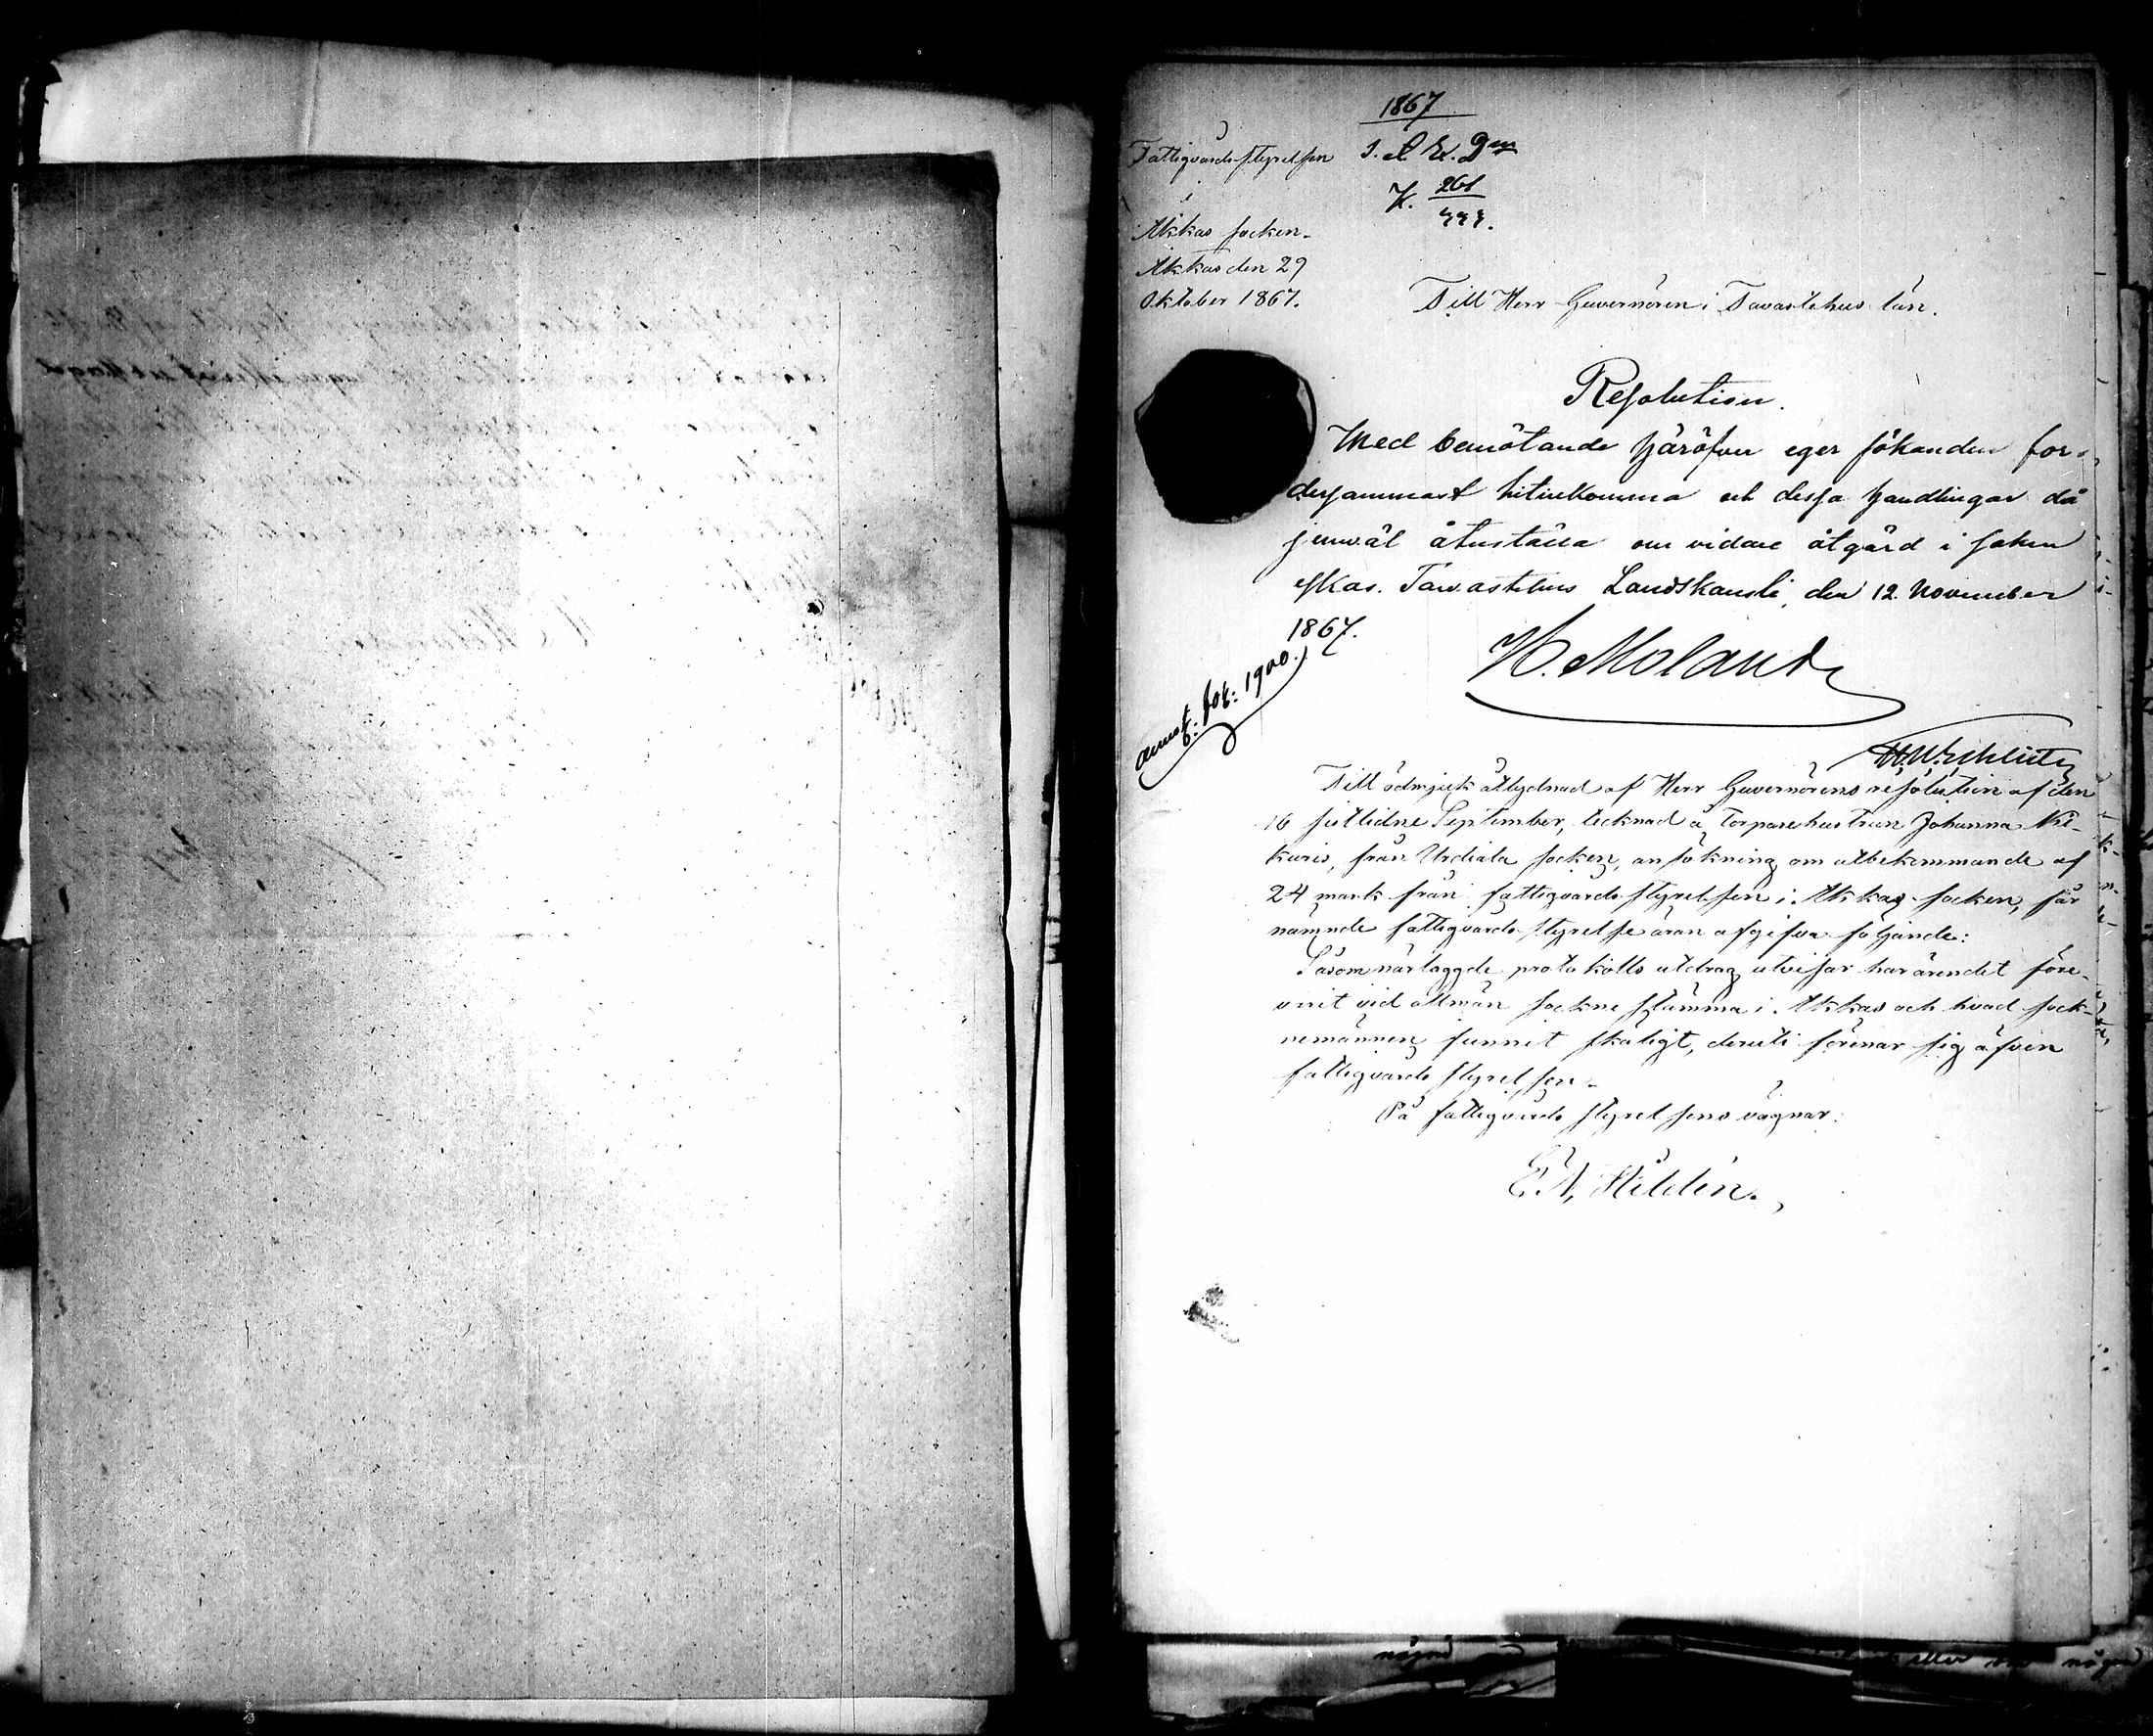 1867
Fattigvårdsstyrelsen
i
Akkas socken.
Akkas den 29
Oktober 1867.
K. 261
Till Herr Guvernören i Tavastehus län.
Resolution.
Med bemötande häröfver eger sökanden for-
dersammast hitinkomma och dessa handlingar då
jemväl återställa om vidare åtgärd i saken
äskas. Tavastehus Landskansli, den 12 November
1867.
H. Molander
Till ödmjuk åtlydnad af Herr Guvernörens resolution af den
16 sistlidne September, tecknad å torparehustrun Johanna
från Urdiala socken, ansökning om utbekommande af
24 mark från fattigvårdsstyrelsen i Akkas socken, får
nämnde fattigvårdsstyrelse äran afgifva följande:
Såsom närlaggde protokolls utdrag utvisar har ärendet före-
varit vid allmän sockne stämma i Akkas och hvad sock-
nemännen funnit skäligt, deruti förenar sig äfven
fattigvårds styrelsen.
På fattigvårds styrelsens vägnar:
Hildén.